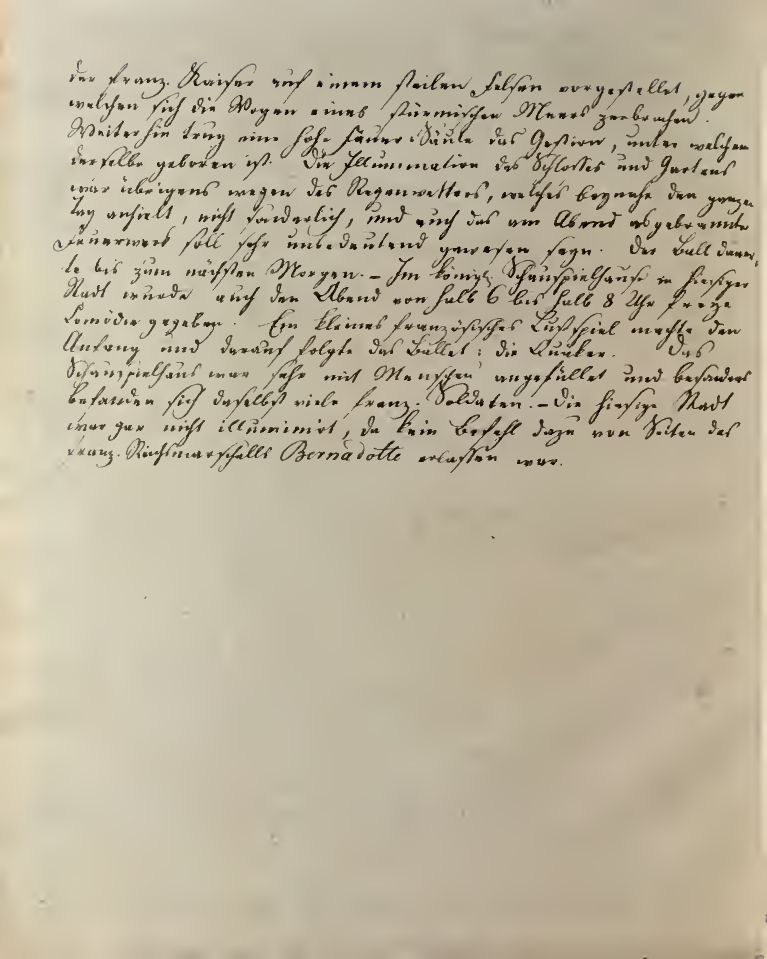 der franz. Kaiser auf einem steilen Felsen vorgestellet, gegen
welchen sich die Wogen eines stürmischen Meers zerbrachen.
Weiterhin trug eine hohe Feuer-Säule das Gestirn, unter welchem
derselbe geboren ist. Die Illumination des Schlosses und Gartens
war übrigens wegen des Regenwetters, welches beynahe den ganzen
Tag anhielt, nicht sonderlich, und auch das am Abend abgebrannte
Feuerwerk soll sehr unbedeutend gewesen seyn. Der Ball dauer-
te bis zum nächsten Morgen. – Im königl. Schauspielhause in hiesiger
Stadt wurde auch den Abend von halb 6 bis halb 8 Uhr freye
Comödie gegeben. Ein kleines französisches Lustspiel machte den
Anfang und darauf folgte das Ballet: die Quäker. Das
Schauspielhaus war sehr mit Menschen angefüllet und besonders
befanden sich daselbst viele franz. Soldaten. – Die hiesige Stadt
war gar nicht illuminirt, da kein Befehl dazu von Seiten des
franz. Reichsmarschalls Bernadotte erlassen war.